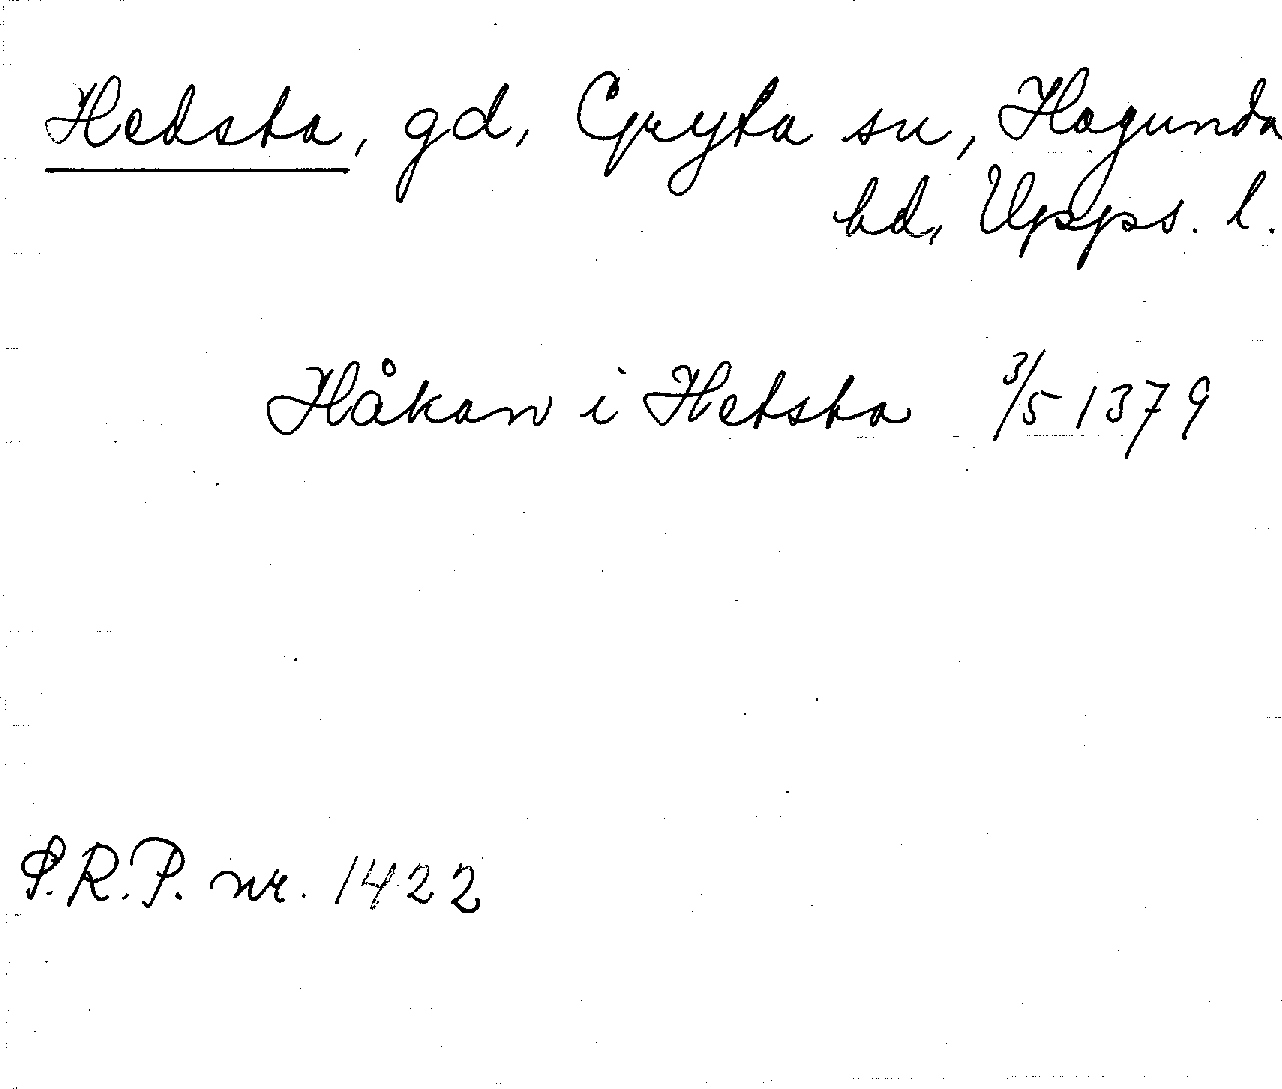 Hedsta, gd, Gryta sn, Hagunda
hd, Upps. l.
Håkan i Hetsta 3/5 1379
S.R.P. nr. 1422